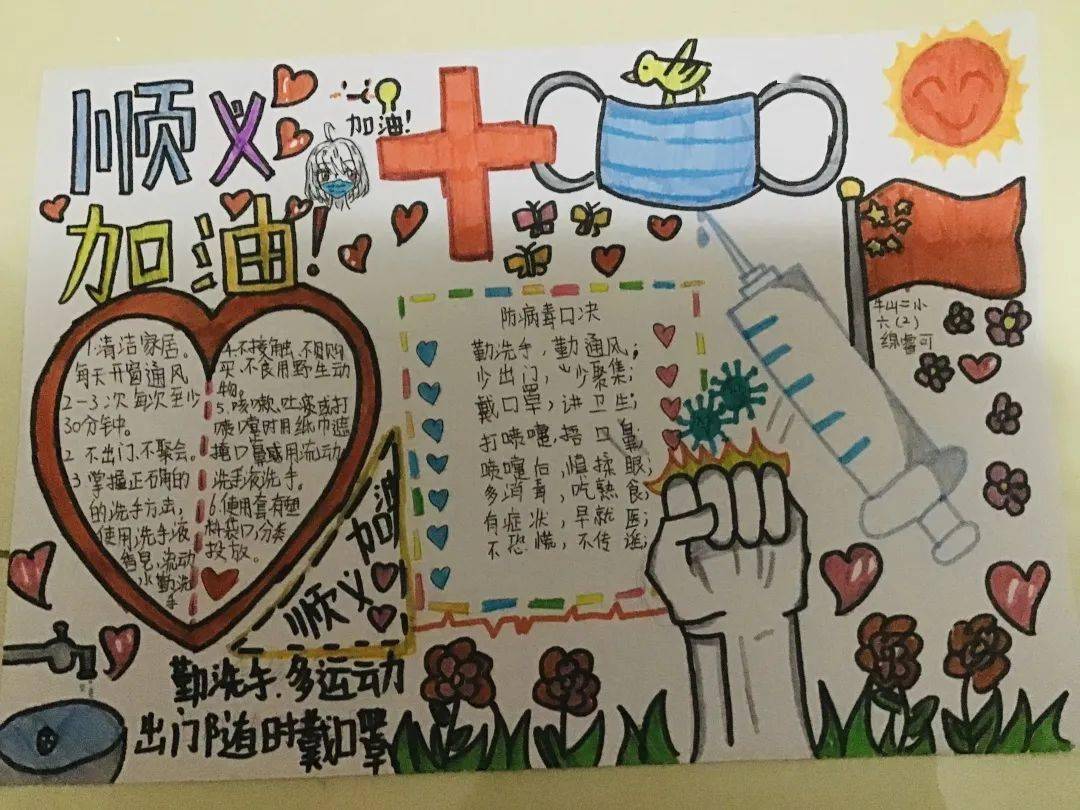 顺义
加油!
加油!
1.清洁家居。
每天开窗通风
2-3次每次至少
30分钟。
2 不出门、不聚会。
3 掌握正确的
的洗手方法,
使用洗手液
香皂,流动
水勤洗
手
4.不接触、不购
买、不食用野生动
物。
5.咳嗽、吐痰或打
喷嚏时用纸巾遮
掩口鼻或用流动
洗手液洗手。
6.使用套有塑
料袋口,分类
投放。
防病毒口决
勤洗手,勤通风;
少出门,少聚集;
戴口罩,讲卫生;
打喷嚏,捂口鼻;
喷嚏后,慎揉眼;
多消毒,吃熟食;
有症状,早就医;
不恐慌,不传谣;
牛山二小
六(2)
顺义加油
勤洗手.多运动
出门随时戴口罩